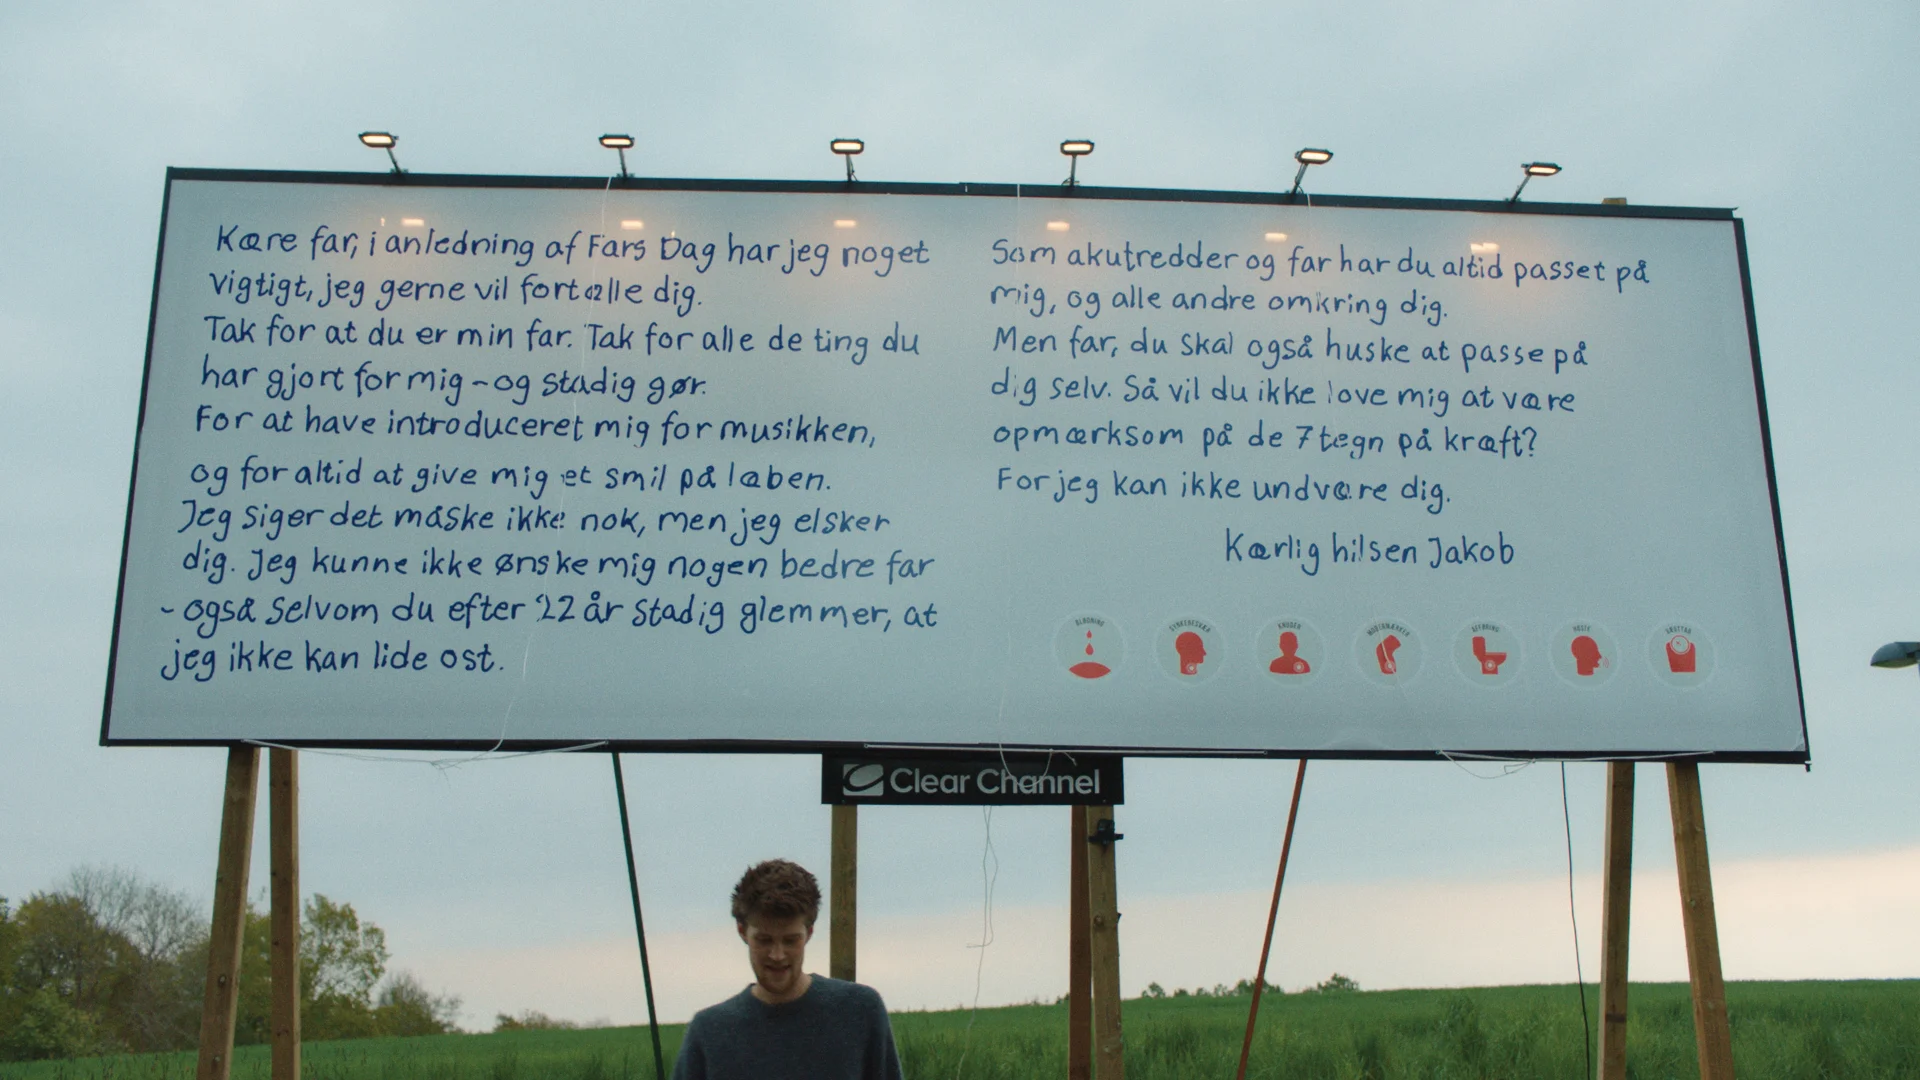 Kære far, i anledning af Fars Dag har jeg noget
vigtigt, jeg gerne vil fortælle dig.
Tak for at du er min far. Tak for alle de ting du
har gjort for mig - og stadig gør.
For at have introduceret mig for musikken,
og for altid at give mig et smil på læben.
Jeg siger det måske ikke nok, men jeg elsker
dig. Jeg kunne ikke ønske mig nogen bedre far
- også selvom du efter 22 år stadig glemmer, at
jeg ikke kan lide ost.
Som akutredder og far har du altid passet på
mig, og alle andre omkring dig.
Men far, du skal også huske at passe på
dig selv. Så vil du ikke love mig at være
opmærksom på de 7 tegn på kræft?
For jeg kan ikke undvære dig.
Kærlig hilsen Jakob
BLØDNING
SYNKEBESVÆR
KNUDER
MODERMÆRKER
AFFØRING
HOSTE
VÆGTTAB
Clear Channel